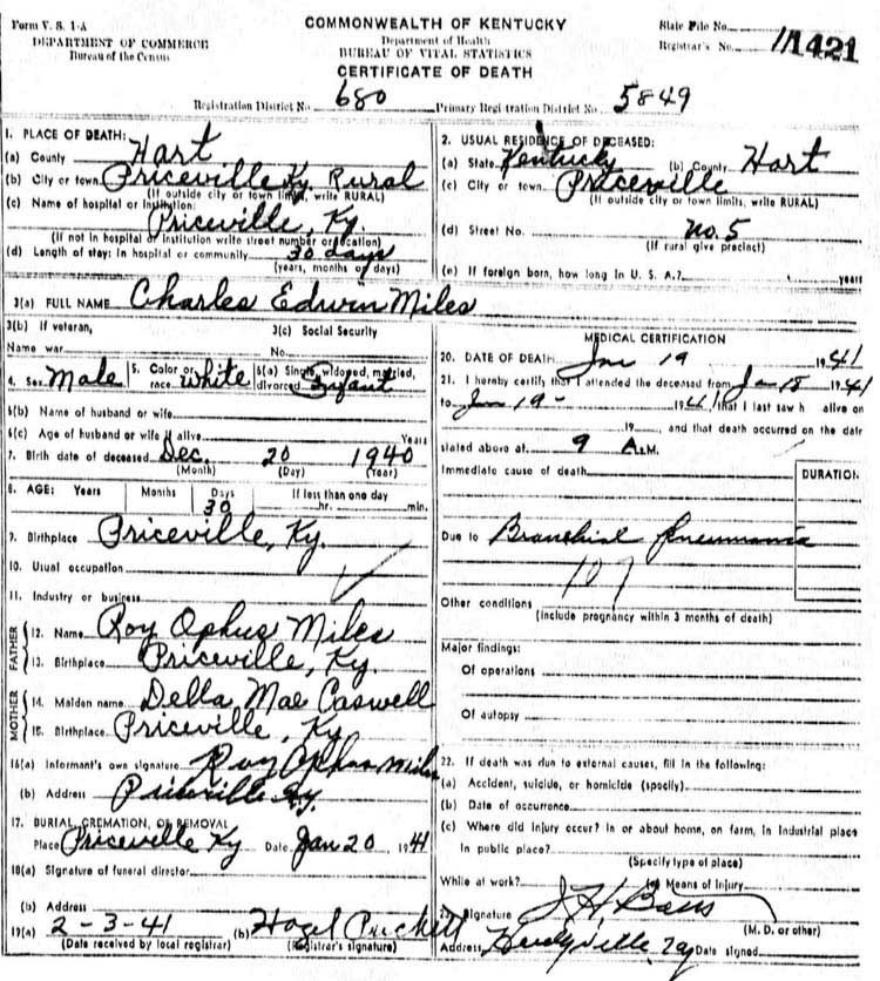 Form V. S. 1-A
DEPARTMENT OF COMMERCE
Bureau of the Census
COMMONWEALTH OF KENTUCKY
Department of Health
BUREAU OF VITAL STATISTICS
CERTIFICATE OF DEATH
State File No.
Registrar's No. 1421
Registration District No. 680 Primary Registration District No. 5849
1. PLACE OF DEATH:
(a) County Hart
(b) City or town Priceville Ky. Rural
(If outside city or town limits, write RURAL)
(c) Name of hospital or Institution:
Priceville, Ky.
(If not in hospital or institution write street number or location)
(d) Length of stay: In hospital or community 30 days
(years, months or days)
2. USUAL RESIDENCE OF DECEASED:
(a) State Kentucky (b) County Hart
(c) City or town Priceville
(If outside city or town limits, write RURAL)
(d) Street No. No. 5
(If rural give precinct)
(e) If foreign born, how long in U. S. A.? years
3(a) FULL NAME Charles Edwin Miles
3(b) If veteran,
Name war
3(c) Social Security
No.
4. Sex Male 5. Color or race White 6(a) Single, widowed, married, divorced Infant
6(b) Name of husband or wife
6(c) Age of husband or wife if alive Years
7. Birth date of deceased Dec. 20 1940
(Month) (Day) (Year)
8. AGE: Years Months Days If less than one day
30 hr. min.
9. Birthplace Priceville, Ky.
10. Usual occupation
11. Industry or business
FATHER
12. Name Roy Ophus Miles
13. Birthplace Priceville, Ky.
MOTHER
14. Maiden name Della Mae Caswell
15. Birthplace Priceville, Ky
16(a) Informant's own signature Roy Ophus Miles
(b) Address Priceville Ky.
17. BURIAL, CREMATION, OR REMOVAL
Place Priceville Ky Date Jan 20, 1941
18(a) Signature of funeral director
(b) Address
19(a) 2-3-41 (b) Hazel Puckett
(Date received by local registrar) (Registrar's signature)
MEDICAL CERTIFICATION
20. DATE OF DEATH Jan 19 1941
21. I hereby certify that I attended the deceased from Jan 18 1941
to Jan 19 - 1941, that I last saw h alive on
19 , and that death occurred on the date
stated above at 9 A.M.
Immediate cause of death
DURATION
Due to Bronchial Pneumonia
107
Other conditions
(Include pregnancy within 3 months of death)
Major findings:
Of operations
Of autopsy
22. If death was due to external causes, fill in the following:
(a) Accident, suicide, or homicide (specify)
(b) Date of occurrence
(c) Where did injury occur? In or about home, on farm, in industrial place
in public place?
(Specify type of place)
While at work? (e) Means of Injury
23. Signature
(M. D. or other)
Address Date signed